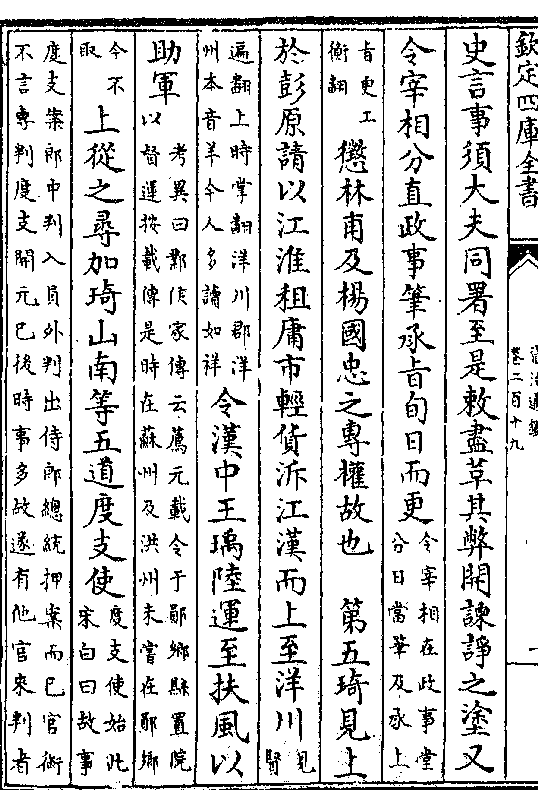 欽定四庫全書
資治通鑑
卷二百十九
一
史言事須大夫同署至是敕盡革其弊開諫諍之塗又
令宰相分直政事筆承旨旬日而更
令宰相在政事堂
分日當筆及承上
旨更工
衡翻
懲林甫及楊國忠之專權故也　第五琦見上
於彭原請以江淮租庸市輕貨泝江漢而上至洋川
見
賢
遍翻上時掌翻洋川郡洋
州本音羊今人多讀如祥
令漢中王瑀陸運至扶風以
助軍
考異曰鄴侯家傳云薦元載令于鄖鄉縣置院
以督運按載傳是時在蘇州及洪州未嘗在鄖鄉
今不
取
上從之尋加琦山南等五道度支使
度支使始此
宋白曰故事
度支案郎中判入員外判出侍郎總統押案而已官銜
不言專判度支開元已後時事多故遂有他官來判者